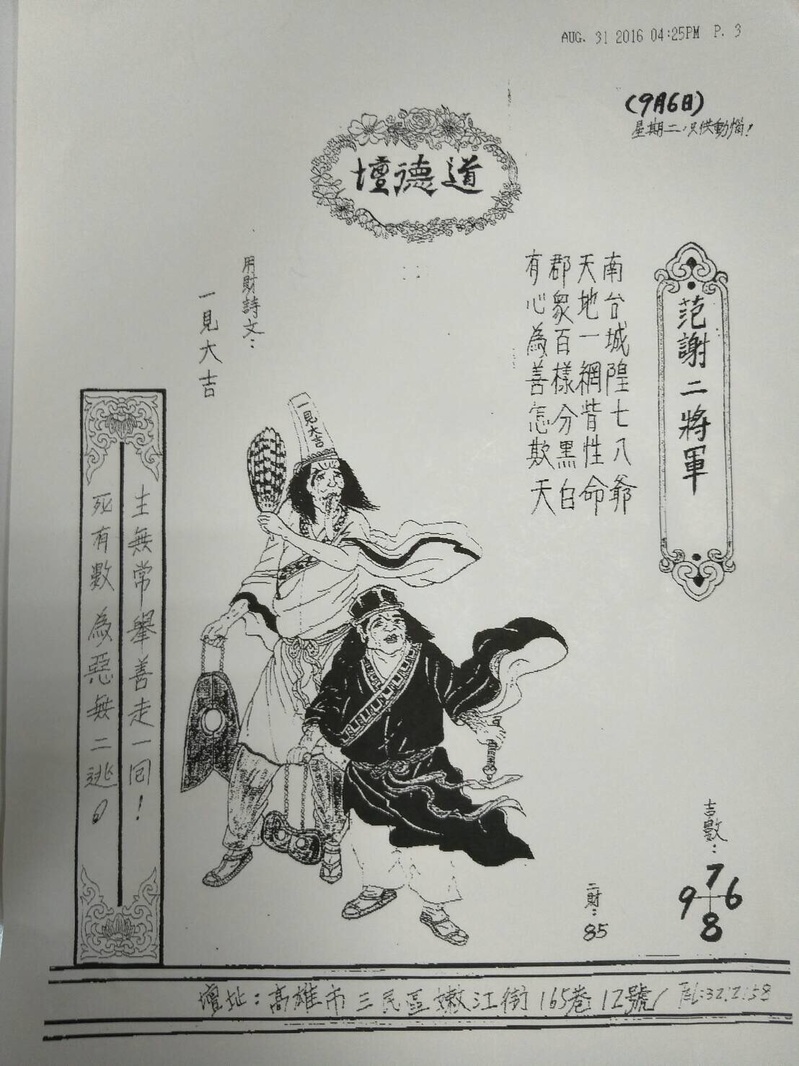 AUG. 31 2016 04:25PM P. 3
(9月6日)
道德壇
范謝二將軍
南台城隍七八爺
天地一網背性命
郡眾百樣分黑白
有心為善怎欺天
用財詩文：
一見大吉
一見大吉
主無常舉善走一回！
死有數為惡無二逃。
吉數：
7
9 6
8
二財：
85
壇址：高雄市三民區嫩江街165巷12號